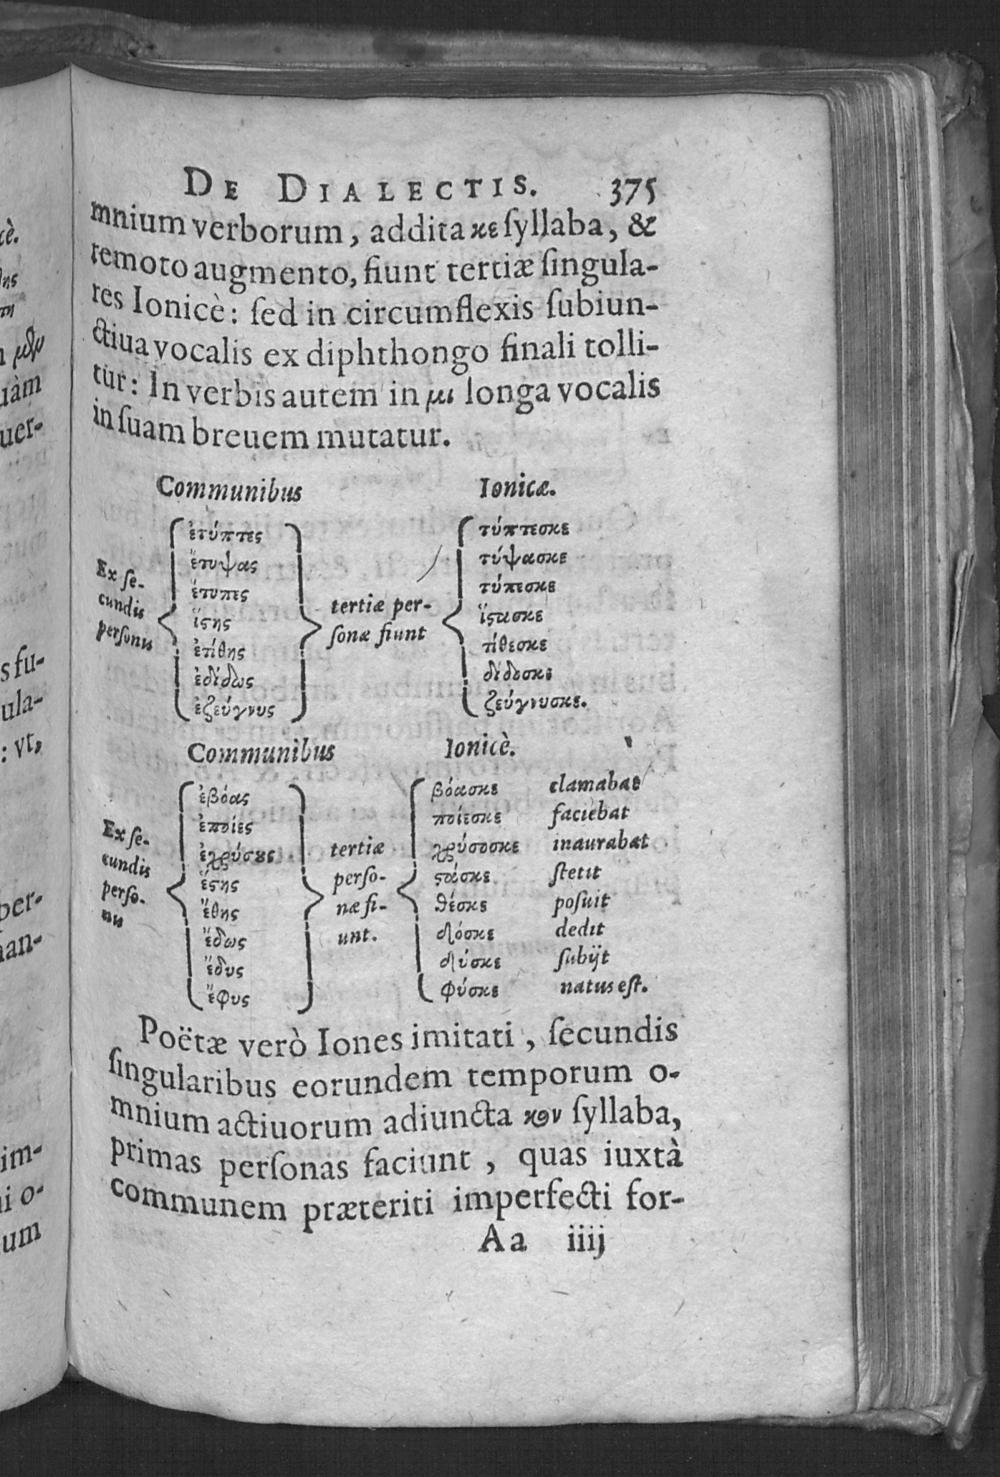 DE DIALECTIS. 375
mnium verborum, addita κε syllaba, &
remoto augmento, fiunt tertiæ singula-
res Ionicè: sed in circumflexis subiun-
ctiua vocalis ex diphthongo finali tolli-
tur: In verbis autem in μι longa vocalis
in suam breuem mutatur.
Communibus Ionicæ.
Ex se-
cundis
personis
ἐτύπτες
ἔτυψας
ἔτυπες
ἵςης
ἐτίθης
ἐδίδως
ἐζεύγνυς
tertiæ per-
sonæ fiunt
τύπτεσκε
τύψασκε
τύπεσκε
ἵςασκε
τίθεσκε
δίδοσκε
ζεύγνυσκε.
Communibus Ionicè.
Ex se-
cundis
perso-
nis
ἐβόας
ἐποίεις
ἐχρύσους
ἔςης
ἔθης
ἔδως
ἔδυς
ἔφυς
tertiæ
perso-
næ fi-
unt.
βόασκε clamabat
ποίεσκε faciebat
χρύσοσκε inaurabat
ςάσκε stetit
θέσκε posuit
δόσκε dedit
δύσκε subijt
φύσκε natus est.
Poëtæ verò Iones imitati, secundis
singularibus eorundem temporum o-
mnium actiuorum adiuncta κον syllaba,
primas personas faciunt, quas iuxtà
communem præteriti imperfecti for-
Aa iiij